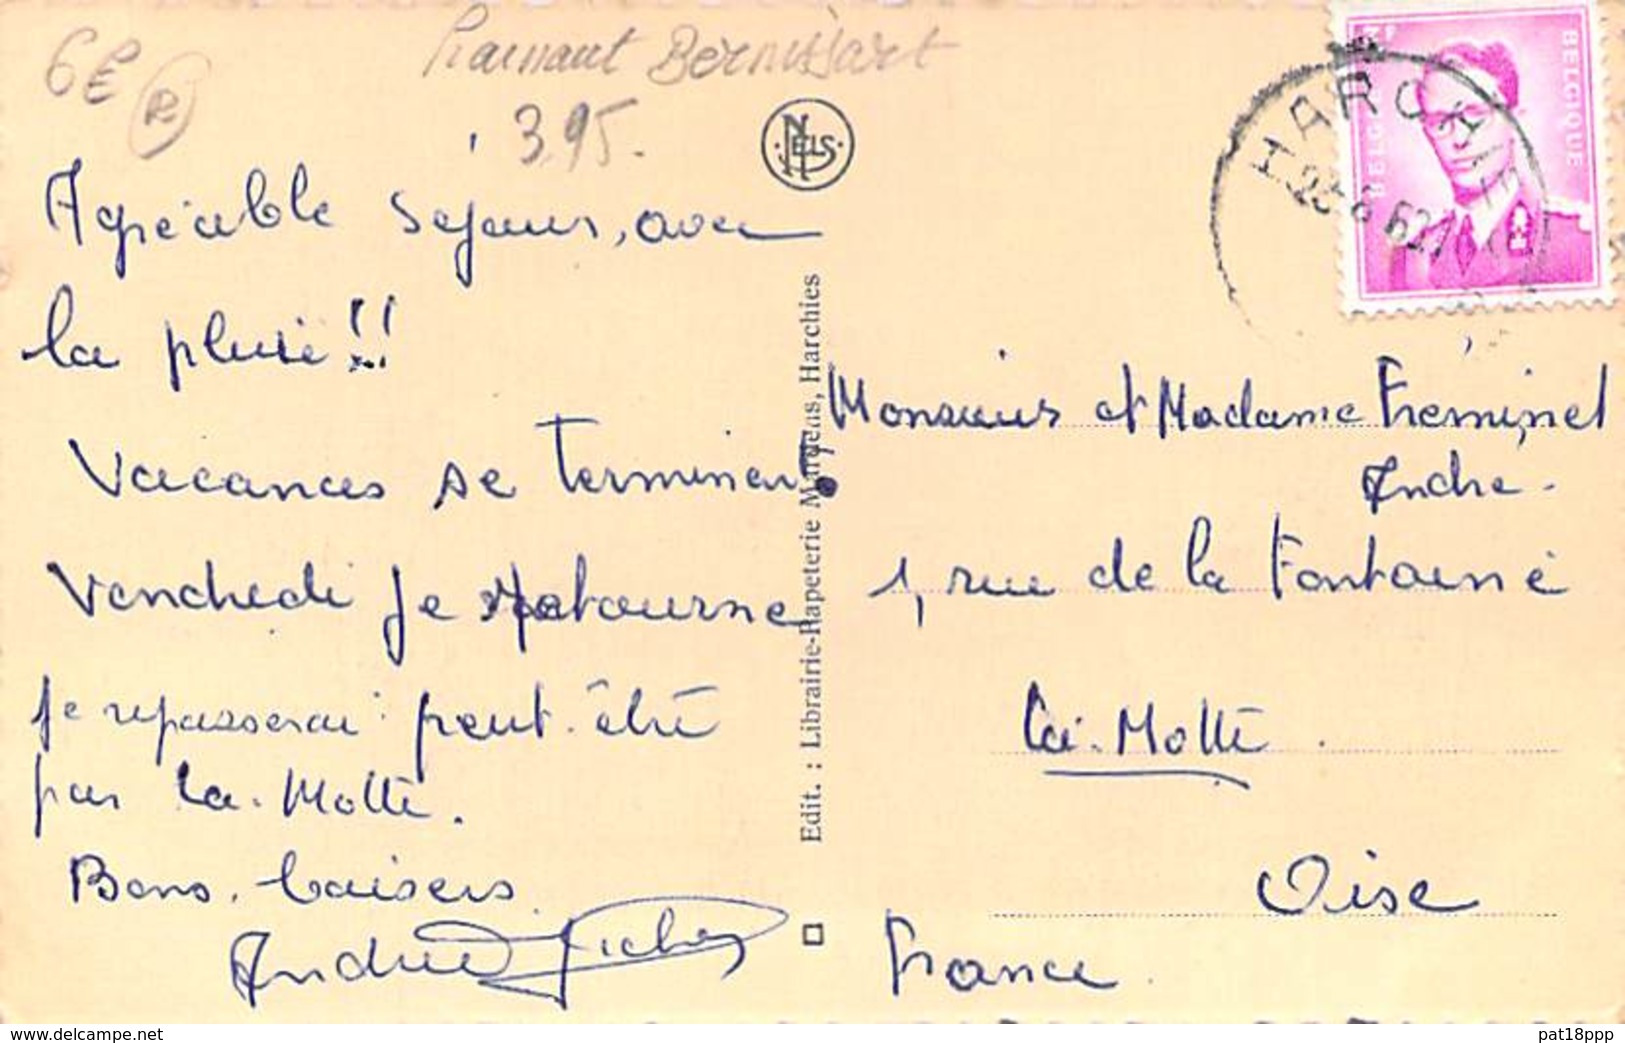 6€
Hainaut Bernissart
3,95.
NELS
BELGIQUE
HARCHIES
Agréable séjour, avec
la pluie!!
Vacances se terminent!
Vendredi je retourne
je repasserai peut-être
par La-Motte.
Bons baisers
Andrée
Edit. : Librairie-Papeterie Mardens, Harchies
Monsieur et Madame Fréminet
André.
1, rue de la Fontaine
La-Motte.
Oise
France.
www.delcampe.net
pat18ppp